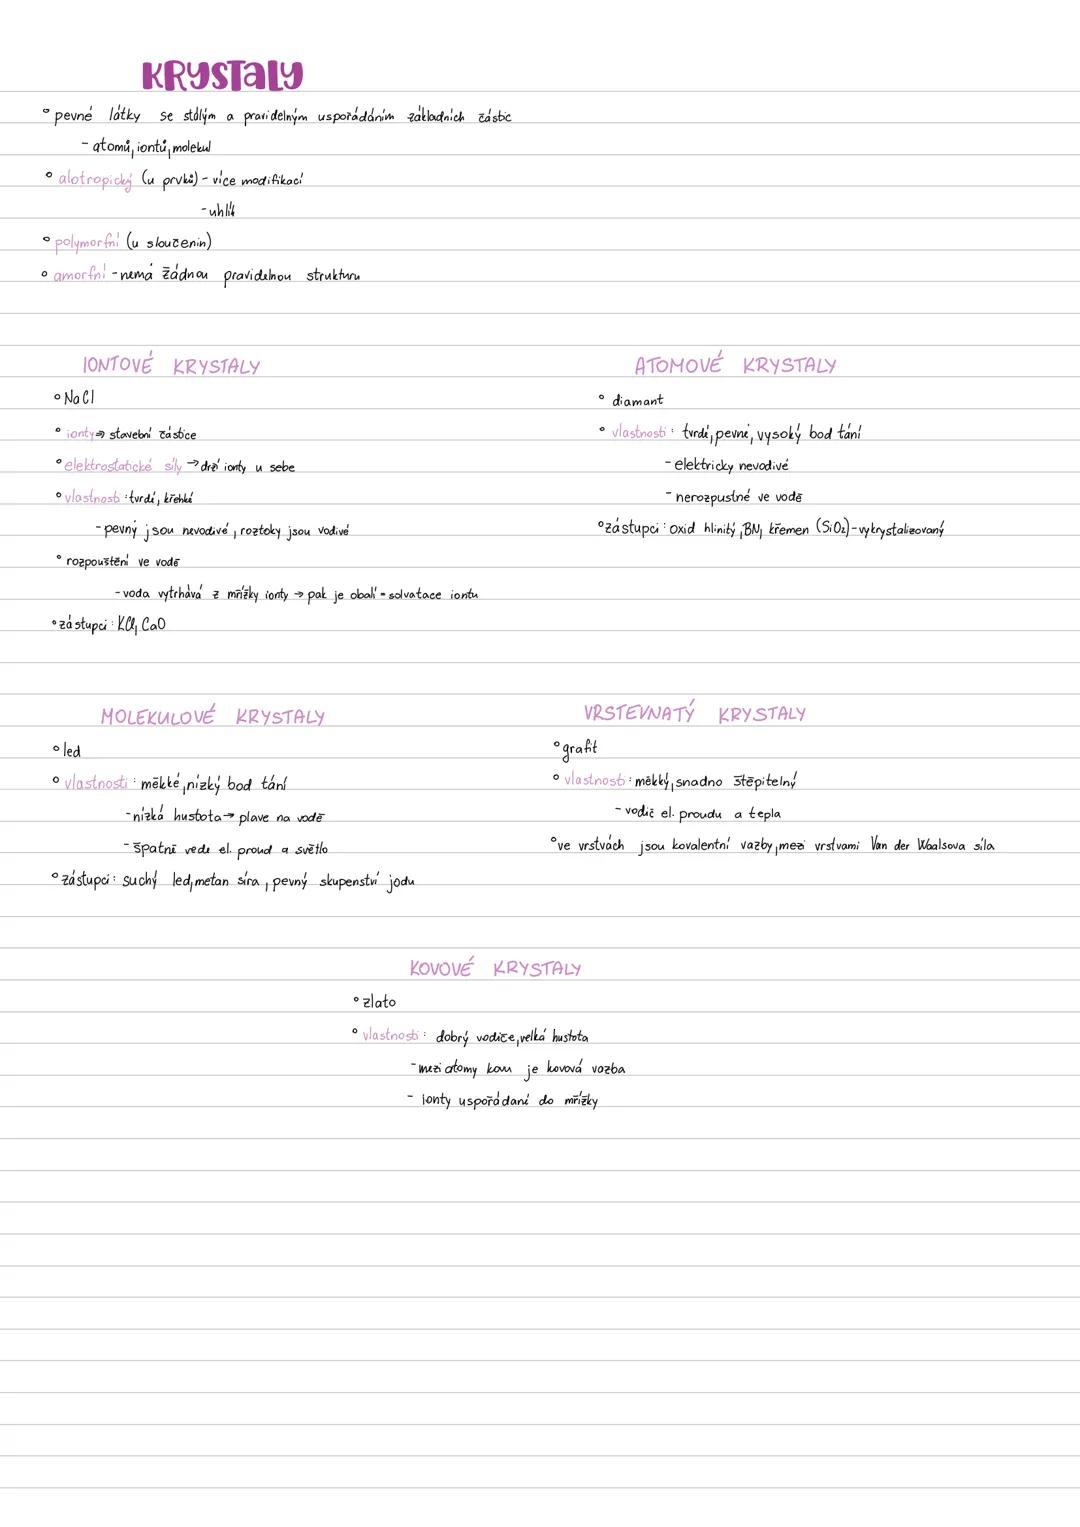 KRYSTALY
° pevné látky se stálým a pravidelným uspořádáním základních částic
- atomů, iontů, molekul
° alotropický (u prvků) - více modifikací
- uhlík
° polymorfní (u sloučenin)
° amorfní - nemá žádnou pravidelnou strukturu
IONTOVÉ KRYSTALY
° NaCl
° ionty ⇒ stavební částice
° elektrostatické síly → drží ionty u sebe
° vlastnosti : tvrdé, křehké
- pevný jsou nevodivé, roztoky jsou vodivé
° rozpouštění ve vodě
- voda vytrhává z mřížky ionty → pak je obalí = solvatace iontu
° zástupci : KCl, CaO
ATOMOVÉ KRYSTALY
° diamant
° vlastnosti : tvrdé, pevné, vysoký bod tání
- elektricky nevodivé
- nerozpustné ve vodě
° zástupci : oxid hlinitý, BN, křemen (SiO₂) - vykrystalizovaný
MOLEKULOVÉ KRYSTALY
° led
° vlastnosti : měkké, nízký bod tání
- nízká hustota → plave na vodě
- špatně vede el. proud a světlo
° zástupci : suchý led, metan síra, pevný skupenství jodu
VRSTEVNATÝ KRYSTALY
° grafit
° vlastnosti : měkký, snadno štěpitelný
- vodič el. proudu a tepla
° ve vrstvách jsou kovalentní vazby, mezi vrstvami Van der Waalsova síla
KOVOVÉ KRYSTALY
° zlato
° vlastnosti : dobrý vodiče, velká hustota
- mezi atomy kovu je kovová vazba
- ionty uspořádaní do mřížky